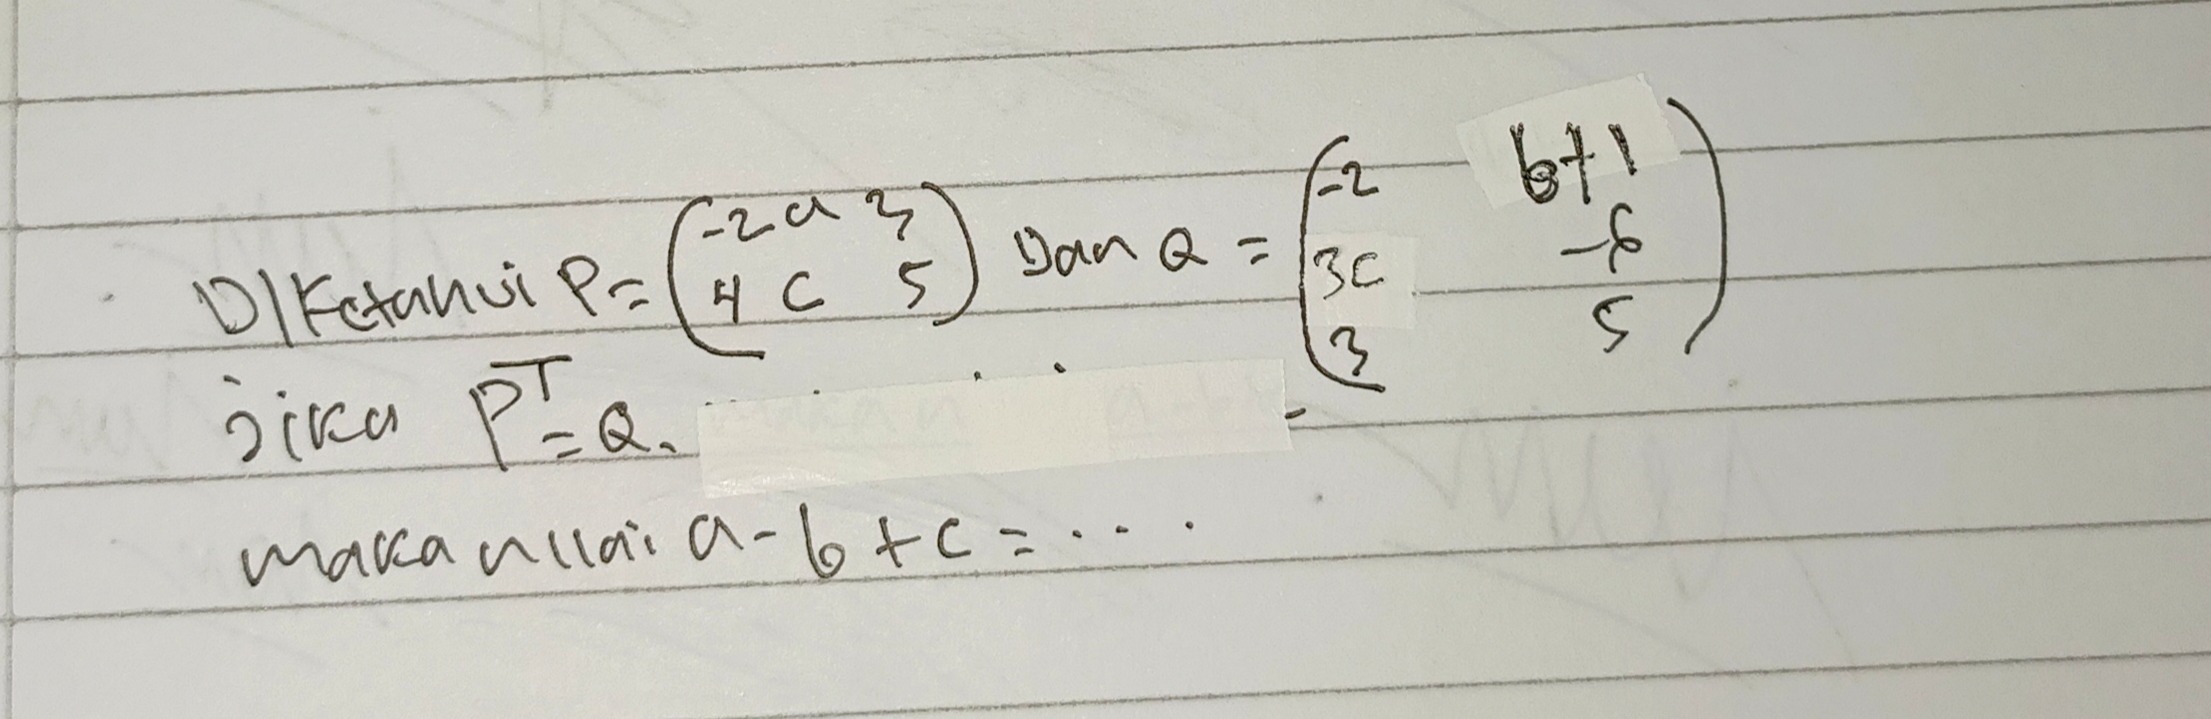 Diketahui P = (-2 a 3 / 4 c 5) Dan Q = (-2 b+1 / 3c -6 / 3 5)
Jika P^T = Q.
maka nilai a - b + c = ....